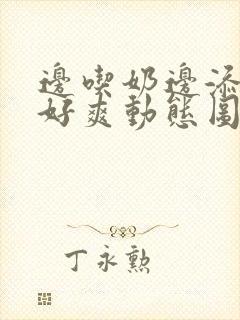 邊喫奶邊添
好爽動態圖
丁永勲